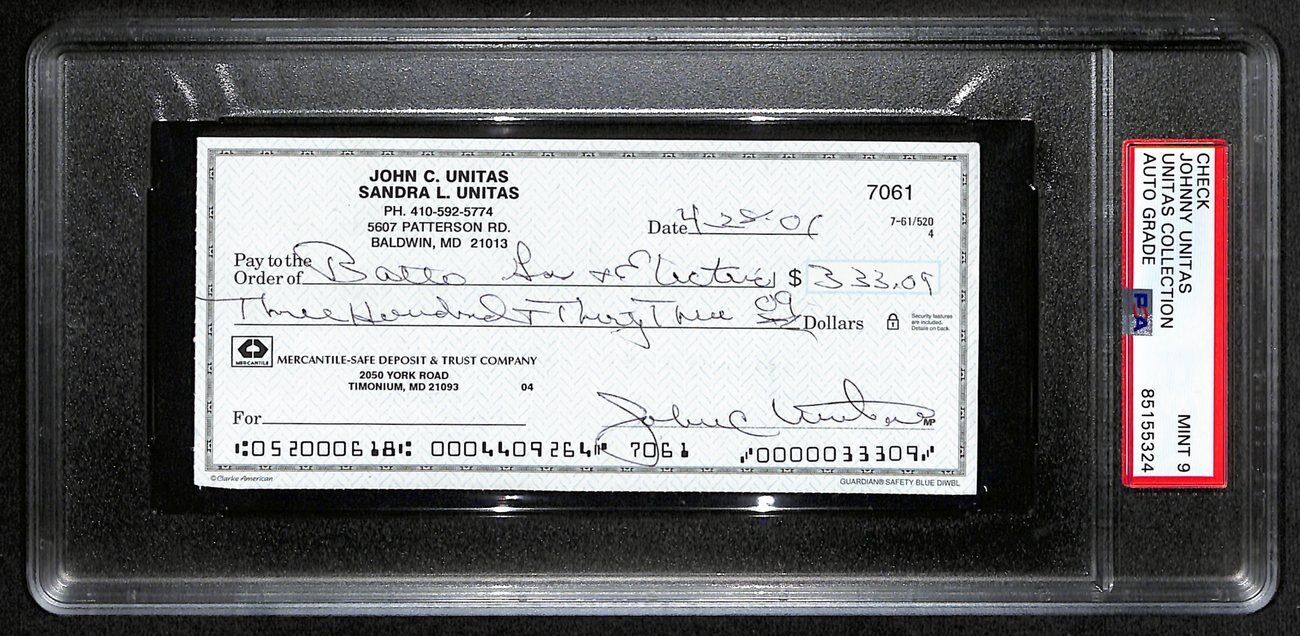 JOHN C. UNITAS
SANDRA L. UNITAS
PH. 410-592-5774
5607 PATTERSON RD.
BALDWIN, MD 21013
7061
7-61/520
4
Date 4-28-01
Pay to the
Order of Balto Gas & Electric $ 333.09
Three Hundred & Thirty Three 09 Dollars
Security features
are included.
Details on back.
MERCANTILE
MERCANTILE-SAFE DEPOSIT & TRUST COMPANY
2050 YORK ROAD
TIMONIUM, MD 21093 04
For
John C Unitas
MP
⑆052000618⑆ 0004409264⑈ 7061 ⑈0000033309⑈
©Clarke American
GUARDIAN® SAFETY BLUE DIWBL
CHECK
JOHNNY UNITAS
UNITAS COLLECTION
AUTO GRADE
MINT 9
85155324
PSA